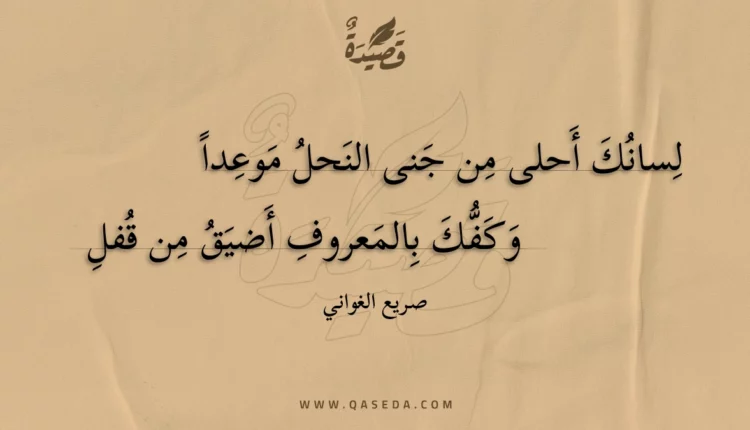 قَصِيدَةٌ
لِسانُكَ أَحلى مِن جَنى النَحلُ مَوعِداً
وَكَفُّكَ بِالمَعروفِ أَضيَقُ مِن قُفلِ
صريع الغواني
WWW.QASEDA.COM